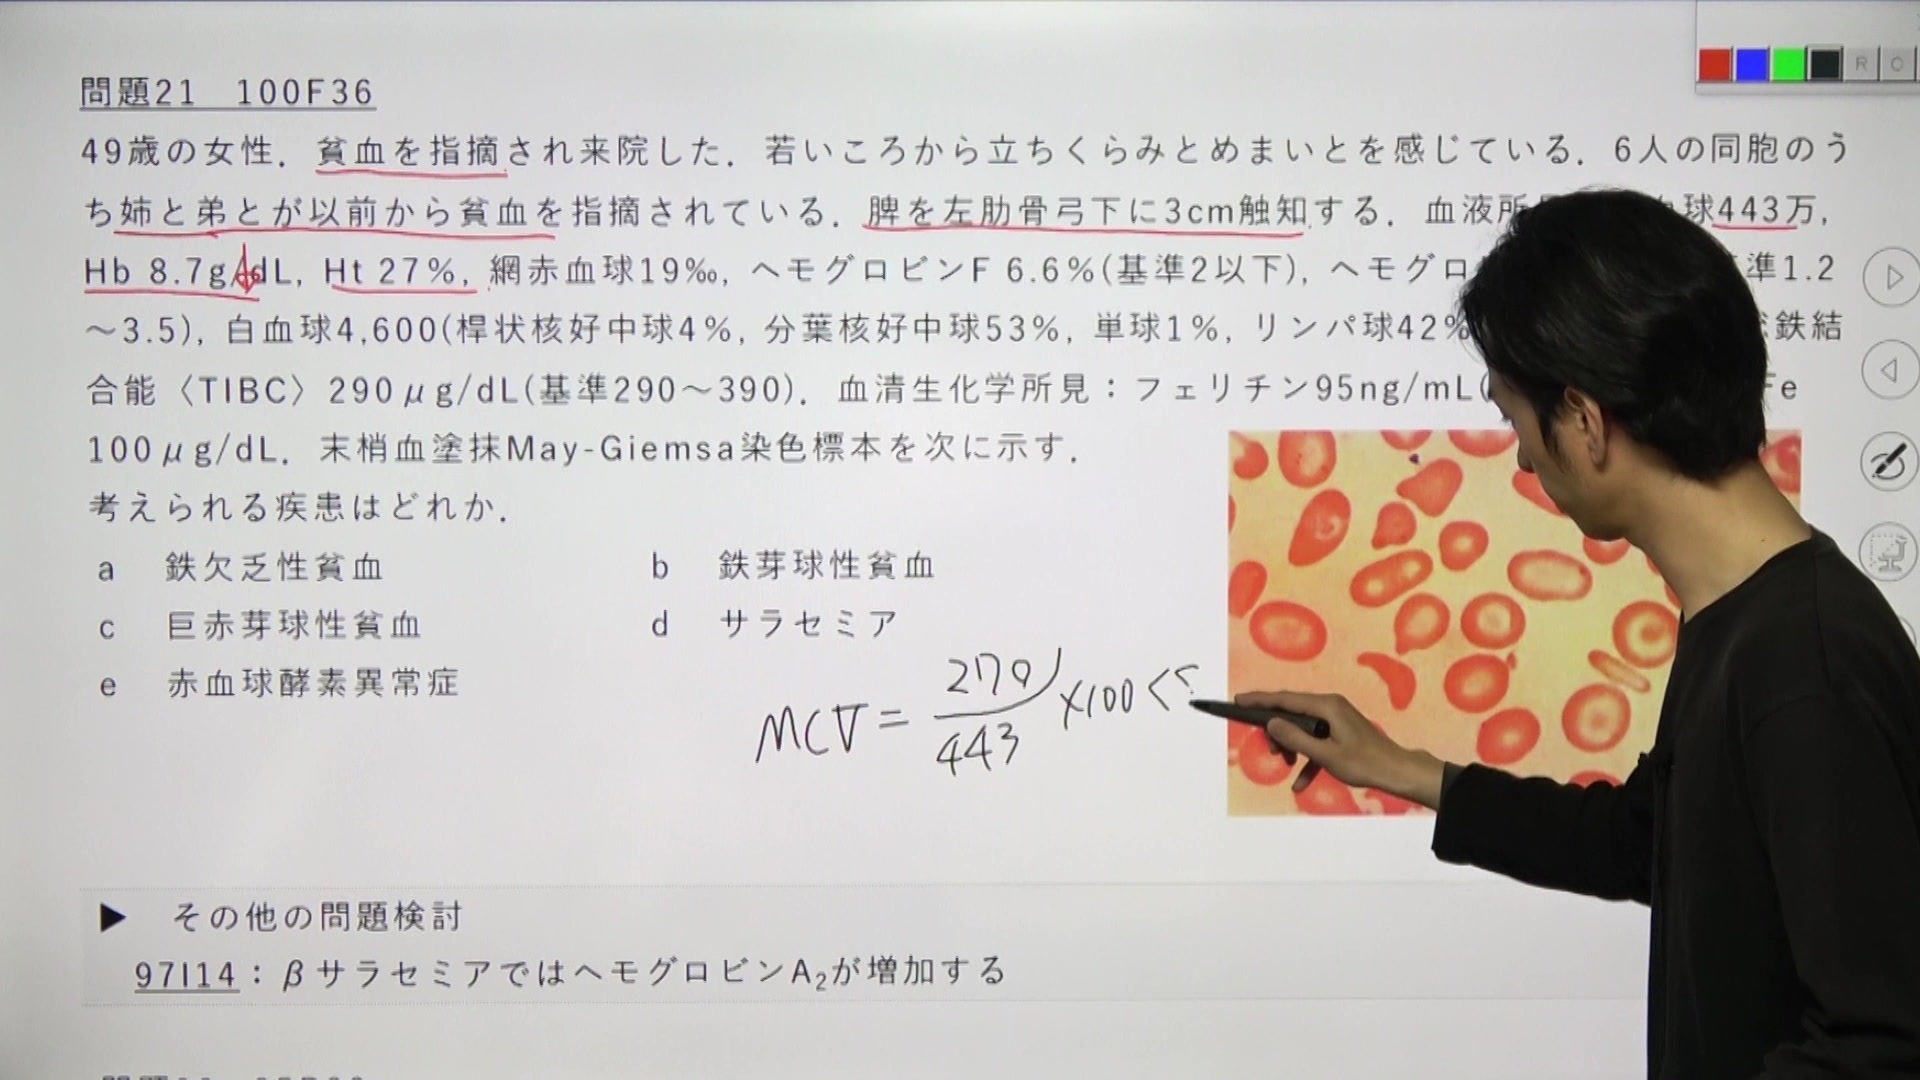 問題21 100F36
49歳の女性．貧血を指摘され来院した．若いころから立ちくらみとめまいとを感じている．6人の同胞のう
ち姉と弟とが以前から貧血を指摘されている．脾を左肋骨弓下に3cm触知する．血液所 球443万,
Hb 8.7g/dL, Ht 27%, 網赤血球19‰, ヘモグロビンF 6.6%(基準2以下), ヘモグロ 準1.2
～3.5), 白血球4,600(桿状核好中球4%, 分葉核好中球53%, 単球1%, リンパ球42% 鉄結
合能〈TIBC〉290μg/dL(基準290～390)．血清生化学所見：フェリチン95ng/mL( Fe
100μg/dL．末梢血塗抹May-Giemsa染色標本を次に示す．
考えられる疾患はどれか．
a 鉄欠乏性貧血 b 鉄芽球性貧血
c 巨赤芽球性貧血 d サラセミア
e 赤血球酵素異常症
MCV = 270/443 ×100 <
▶ その他の問題検討
97I14：βサラセミアではヘモグロビンA₂が増加する
R O